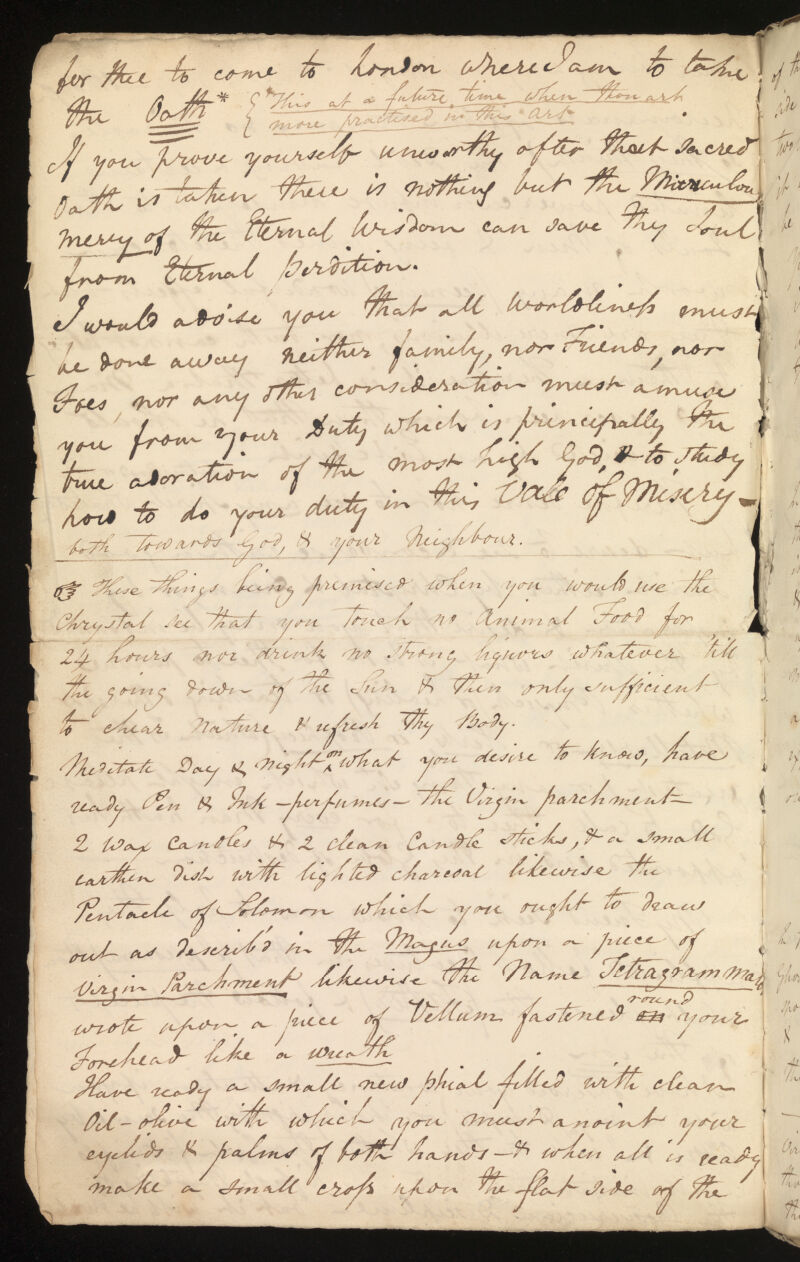 for thee to come to London where I am to take
the Oath* { *This at a future time when thou art
{ more practised in this Art
If you prove yourself unworthy after that sacred
Oath is taken there is nothing but the Miraculous
mercy of the Eternal Wisdom can save thy Soul
from Eternal perdition.
I would advise you that all worldliness must
be done away neither family, nor Friends, nor
Foes, nor any other consideration must amuse
you from your Duty which is principally the
true adoration of the most high God, & to study
how to do your duty in this Vale of Misery—
both towards God, & your Neighbour.
☞ These things being premised when you would use the
Chrystal see that you touch no Animal Food for
24 hours nor drink no strong liquors whatever 'till
the going down of the Sun & then only sufficient
to chear Nature & refresh thy Body.
Meditate Day & Night on what you desire to know, have
ready Pen & Ink – perfumes – the Virgin parchment –
2 wax candles & 2 clean Candle sticks, & a small
earthen dish with lighted charcoal likewise the
Pentacle of Solomon which you ought to draw
out as describ'd in the Magus upon a piece of
Virgin Parchment likewise the Name Tetragrammaton
wrote upon a piece of Vellum fastened on round your
Forehead like a wreath
Have ready a small new phial filled with clean
Oil-olive with which you must anoint your
eyelids & palms of both hands – & when all is ready
make a small cross upon the flat side of the